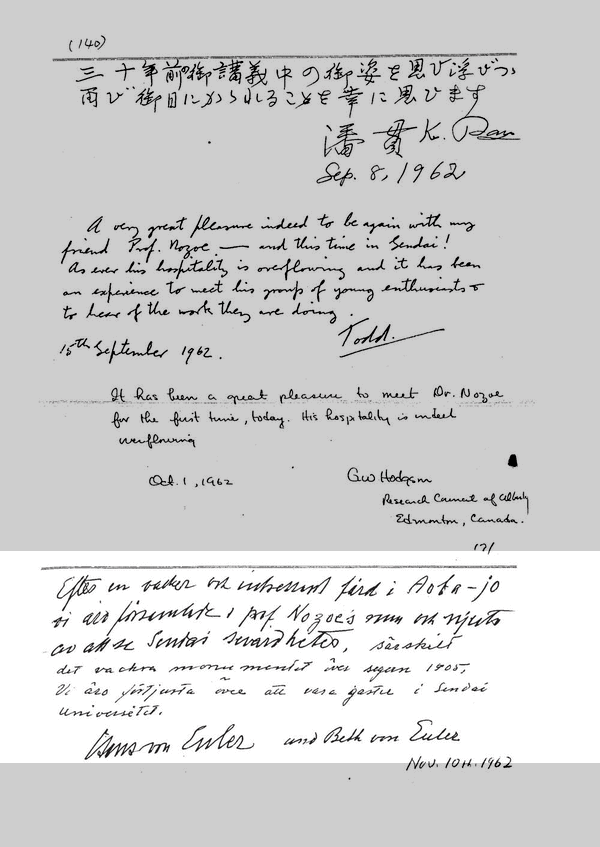 (140)
三十年前の御講義中の御姿を思び浮びつゝ
再び御目にかゝられることを幸に思びます
潘貫 K. Pan
Sep. 8, 1962
A very great pleasure indeed to be again with my
friend Prof. Nozoe — and this time in Sendai!
As ever his hospitality is overflowing and it has been
an experience to meet his group of young enthusiasts &
to hear of the work they are doing.
Todd.
15th September 1962.
It has been a great pleasure to meet Dr. Nozoe
for the first time, today. His hospitality is indeed
overflowing
Oct. 1, 1962
GW Hodgson
Research Council of Alberta
Edmonton, Canada.
Efter en vacker och intressant färd i Aoba-jo
vi äro församlade i prof. Nozoe's rum och njuta
av att se Sendai sevärdheter, särskilt
det vackra monumentet över segern 1905,
Vi äro förtjusta över att vara gäster i Sendai
Universitet.
Hans von Euler und Beth von Euler
Nov. 10th. 1962